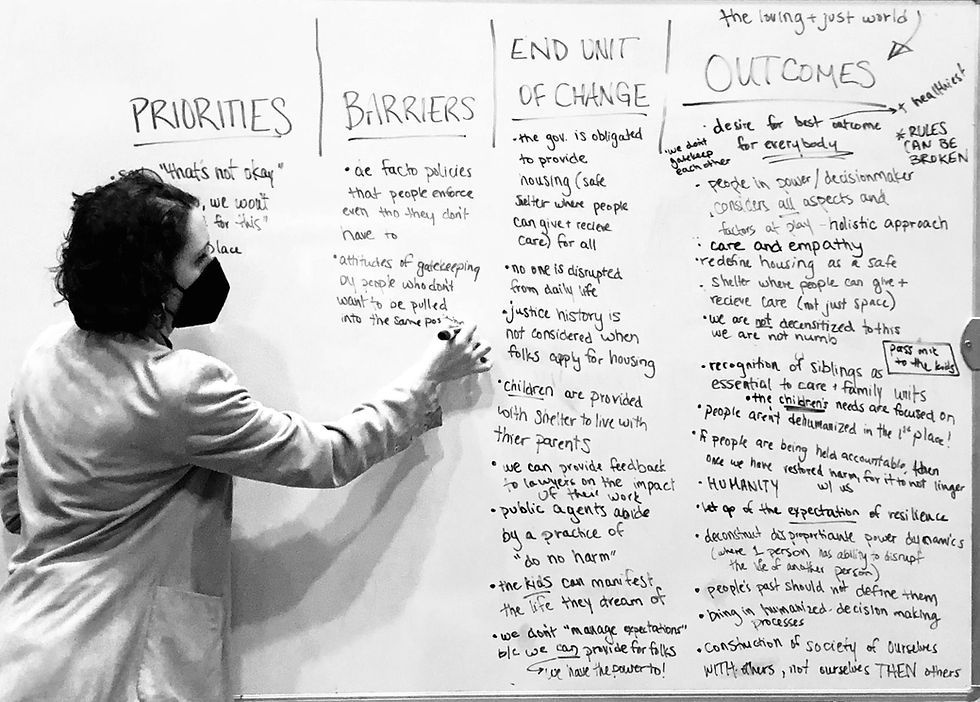 the loving + just world
PRIORITIES
"that's not okay"
, we won't
for this"
place
BARRIERS
• de facto policies
that people enforce
even tho they don't
have to
• attitudes of gatekeeping
by people who don't
want to be pulled
into the same
END UNIT
OF CHANGE
• the gov. is obligated
to provide
housing (safe
shelter where people
can give + recieve
care) for all
• no one is disrupted
from daily life
• justice history is
not considered when
folks apply for housing
• children are provided
with shelter to live with
thier parents
• we can provide feedback
to lawyers on the impact
of their work
• public agents abide
by a practice of
"do no harm"
• the kids can manifest
the life they dream of
• we don't "manage expectations"
b/c we can provide for folks
we have the power to!
OUTCOMES
* healthiest
* RULES
CAN BE
BROKEN
• desire for best outcome
for everybody
• we don't
gatekeep
each other
• people in power/decisionmaker
considers all aspects and
factors at play - holistic approach
• care and empathy
• redefine housing as a safe
shelter where people can give +
recieve care (not just space)
• we are not decensitized to this
we are not numb
pass mic
to the kids
• recognition of siblings as
essential to care + family units
• the children's needs are focused on
• people aren't dehumanized in the 1st place!
• if people are being held accountable, then
once we have restored harm, for it to not linger
w/ us
• HUMANITY
• let go of the expectation of resilience
• deconstruct disproportionate power dynamics
(where 1 person has ability to disrupt
the life of another person)
• people's past should not define them
• bring in humanized-decision making
processes
• construction of society of ourselves
WITH others, not ourselves THEN others